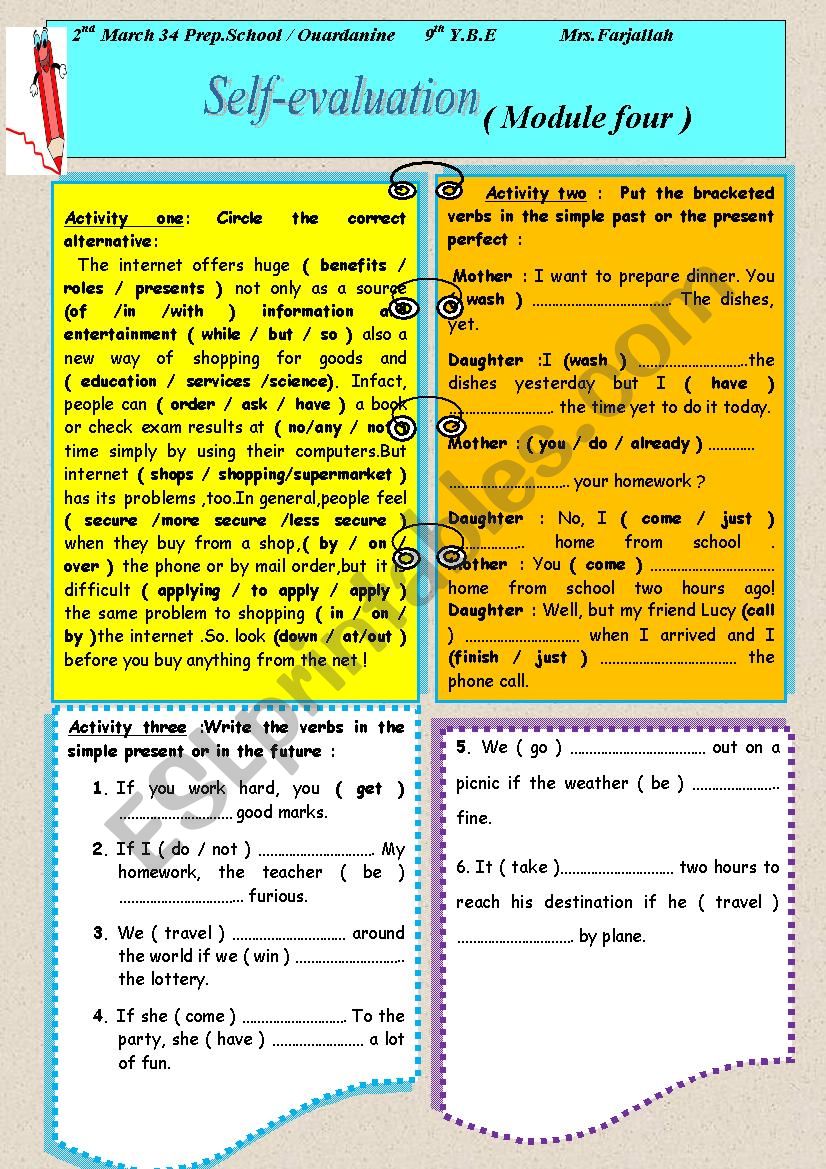 2nd March 34 Prep.School / Ouardanine 9th Y.B.E Mrs.Farjallah
Self-evaluation ( Module four )
Activity one: Circle the correct
alternative:
The internet offers huge ( benefits /
roles / presents ) not only as a source
(of /in /with ) information
entertainment ( while / but / so ) also a
new way of shopping for goods and
( education / services /science). Infact,
people can ( order / ask / have ) a book
or check exam results at ( no/any / not
time simply by using their computers.But
internet ( shops / shopping/supermarket )
has its problems ,too.In general,people feel
( secure /more secure /less secure )
when they buy from a shop,( by / on /
over ) the phone or by mail order,but it is
difficult ( applying / to apply / apply )
the same problem to shopping ( in / on /
by )the internet .So. look (down / at/out )
before you buy anything from the net !
Activity two : Put the bracketed
verbs in the simple past or the present
perfect :
Mother : I want to prepare dinner. You
wash ) ................................ The dishes,
yet.
Daughter :I (wash ) ..............................the
dishes yesterday but I ( have )
.......................... the time yet to do it today.
Mother : ( you / do / already ) ............
.............................. your homework ?
Daughter : No, I ( come / just )
................... home from school .
Mother : You ( come ) ...............................
home from school two hours ago!
Daughter : Well, but my friend Lucy (call
) ............................ when I arrived and I
(finish / just ) .................................. the
phone call.
Activity three :Write the verbs in the
simple present or in the future :
1. If you work hard, you ( get )
............................ good marks.
2. If I ( do / not ) ............................. My
homework, the teacher ( be )
............................... furious.
3. We ( travel ) ............................ around
the world if we ( win ) ...........................
the lottery.
4. If she ( come ) .......................... To the
party, she ( have ) ....................... a lot
of fun.
5. We ( go ) .................................. out on a
picnic if the weather ( be ) ......................
fine.
6. It ( take )............................ two hours to
reach his destination if he ( travel )
............................. by plane.
ESLprintables.com